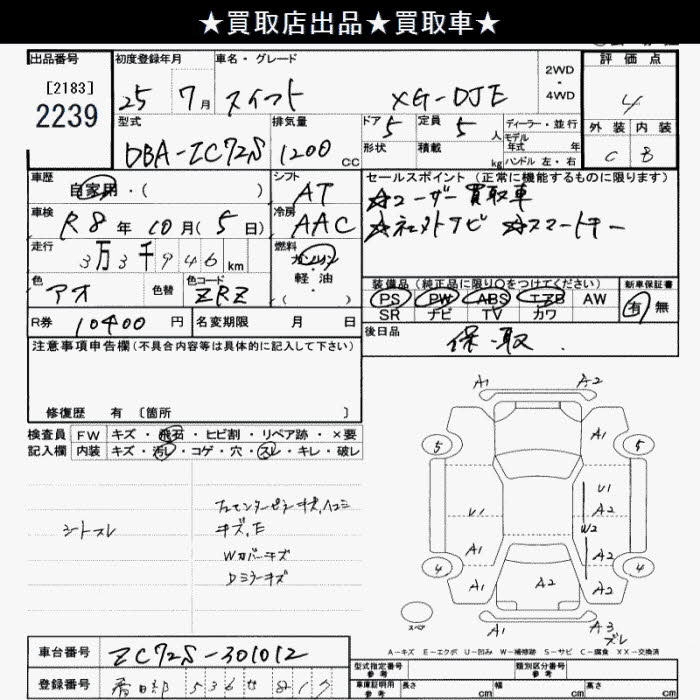 ★買取店出品★買取車★
出品番号 初度登録年月 車名・グレード 評価点
[2183]
2239
25 7月 スイフト XG-DJE 2WD・4WD 4
型式 排気量 ドア 定員 ディーラー・並行 外装 内装
DBA-ZC72S 1200CC 5 5人 モデル年式 年 C B
形状 積載 kg ハンドル 左・右
車歴 シフト セールスポイント(正常に機能するものに限ります)
自家用・( ) AT ☆ユーザー買取車
車検 冷房 ☆ スマートキー
R8年10月(5日) AAC
走行 燃料
3万3千946km ガソリン・軽油・( )
色 色替 色コード 装備品(純正品に限り○をつけてください) 新車保証書
アオ ZRZ PS PW ABS エアB AW 有 無
SR ナビ TV カワ
R券 10400円 名変期限 月 日 後日品
保・取
注意事項申告欄(不具合内容等は具体的に記入して下さい)
修復歴 有 〔箇所 〕
検査員 FW キズ・飛石・ヒビ割・リペア跡・×要
記入欄 内装 キズ・汚レ・コゲ・穴・スレ・キレ・破レ
シートスレ
キズ、E
Wカバーキズ
Dミラーキズ
A1 A2
5 A1 5
U1 U1
A2
W2
A1 A2
4 4
A1 A2 A2
スペア
A1 A3
ズレ
A-キズ E-エクボ U-凹み W-補修跡 S-サビ C-腐食 XX-交換済
車台番号 ZC72S-301012
型式指定番号 参考 類別区分番号 参考
登録番号 春日部 536 せ 817
車庫証明用 参考 長さ cm 幅 cm 高さ cm